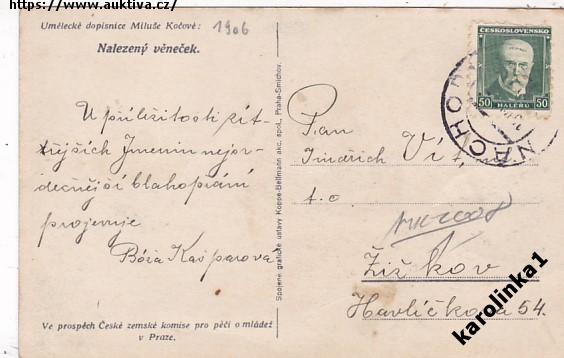 https://www.auktiva.cz/
Umělecké dopisnice Miluše Kočové:
1906
Nalezený věneček.
ČESKOSLOVENSKO
50 HALÉŘŮ 50
NÁCHO
U příležitosti zít-
třejších Jmenin nejsr-
dečnější blahopřání
projevuje
Bóža Kašparova
Ve prospěch České zemské komise pro péči o mládež
v Praze.
Spojené grafické ústavy Koppe-Bellmann akc. spol., Praha-Smíchov.
Pan
Jindřich Vít
t. o.
Žižkov
Havlíčkova 54.
karolinka1